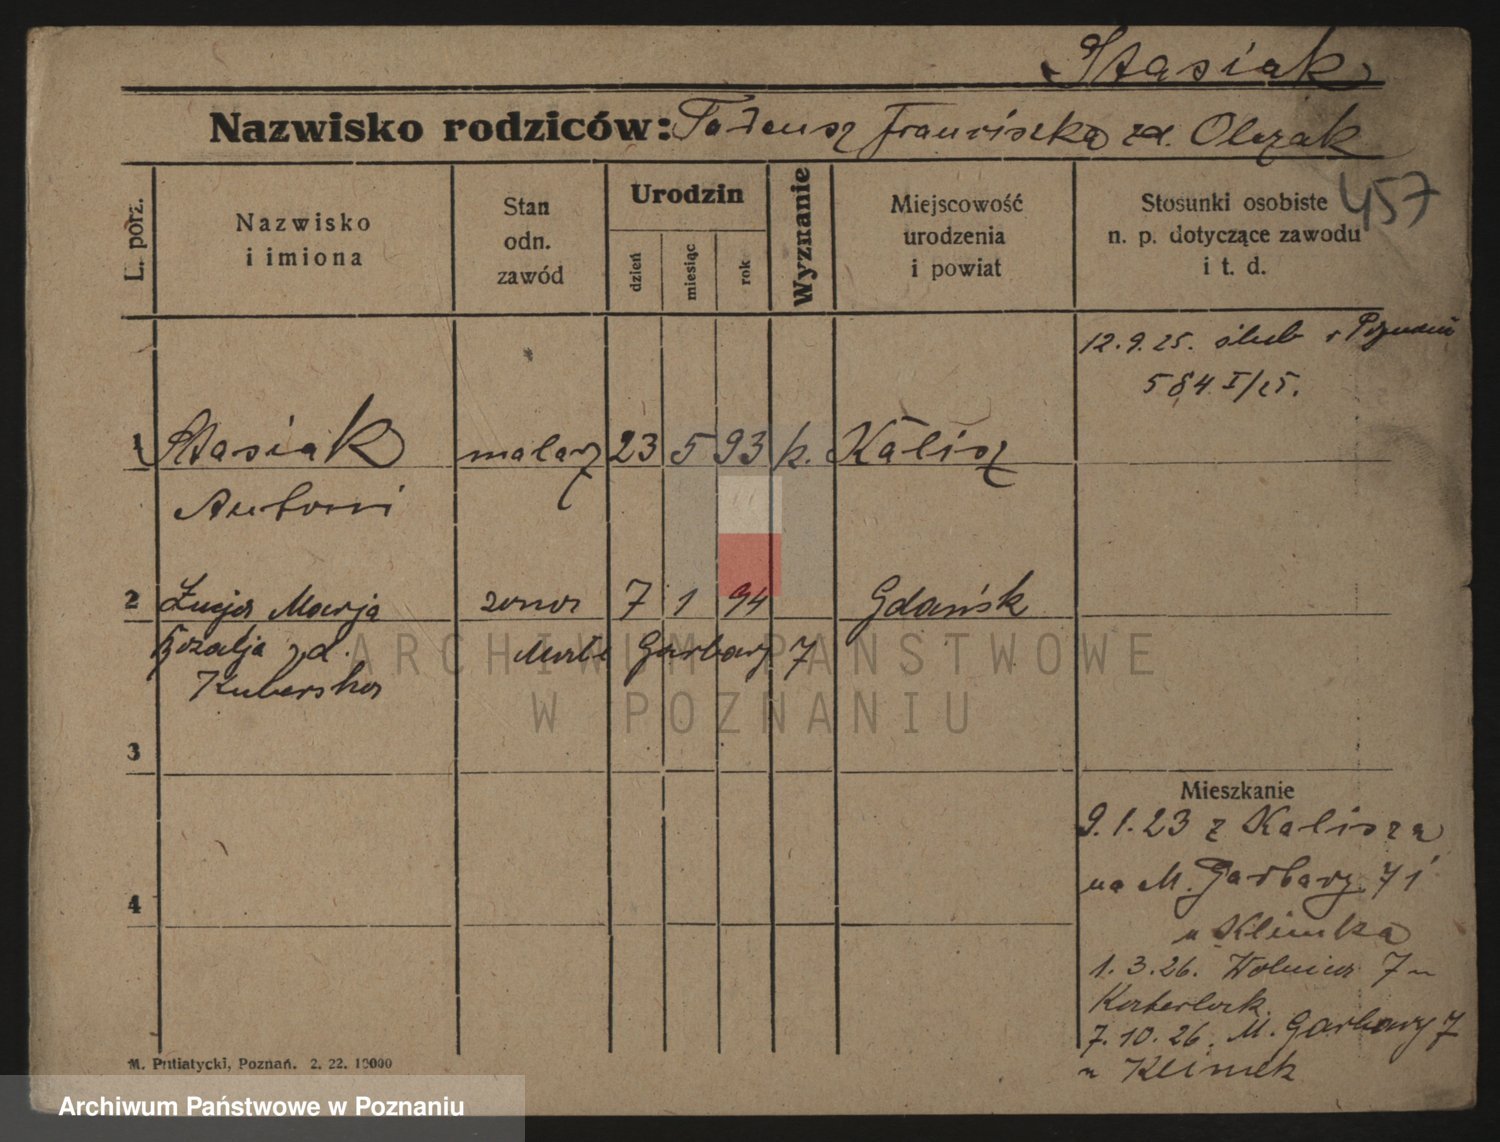 Stasiak
Nazwisko rodziców: Tadeusz Franciszka zd. Olczak
457
L. porz.
Nazwisko
i imiona
Stan
odn.
zawód
Urodzin
dzień
miesiąc
rok
Wyznanie
Miejscowość
urodzenia
i powiat
Stosunki osobiste
n. p. dotyczące zawodu
i t. d.
12.9.25. ślub w Poznaniu
584 I/25.
1 Stasiak malarz 23 5 93 k. Kalisz
Antoni
2 Łucja Marja żona 7 1 94 Gdańsk
Rozalja zd. Małe Garbary 7
Kuberska
3
4
Mieszkanie
9.1.23 z Kalisza
na M. Garbary 7 I
u Klimka
1.3.26. Wolnica 7 u
7.10.26. M. Garbary 7
u Klimek
M. Putiatycki, Poznań. 2. 22. 10000
ARCHIWUM PAŃSTWOWE
W POZNANIU
Archiwum Państwowe w Poznaniu